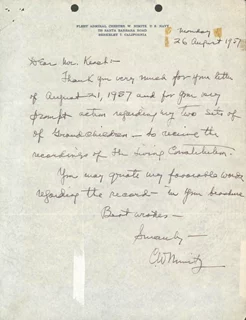 FLEET ADMIRAL CHESTER W. NIMITZ, U.S. NAVY
728 SANTA BARBARA ROAD
BERKELEY 7, CALIFORNIA
Monday
26 August 1957
Dear Mr. 
Thank you very much for your letter
of August 21, 1957 and for your very
prompt action regarding my two sets of
of Grandchildren - to receive the
recordings of The Living Constitution.
You may quote my favorable words
regarding the record - in your brochure
Best wishes -
Sincerely -
CW Nimitz